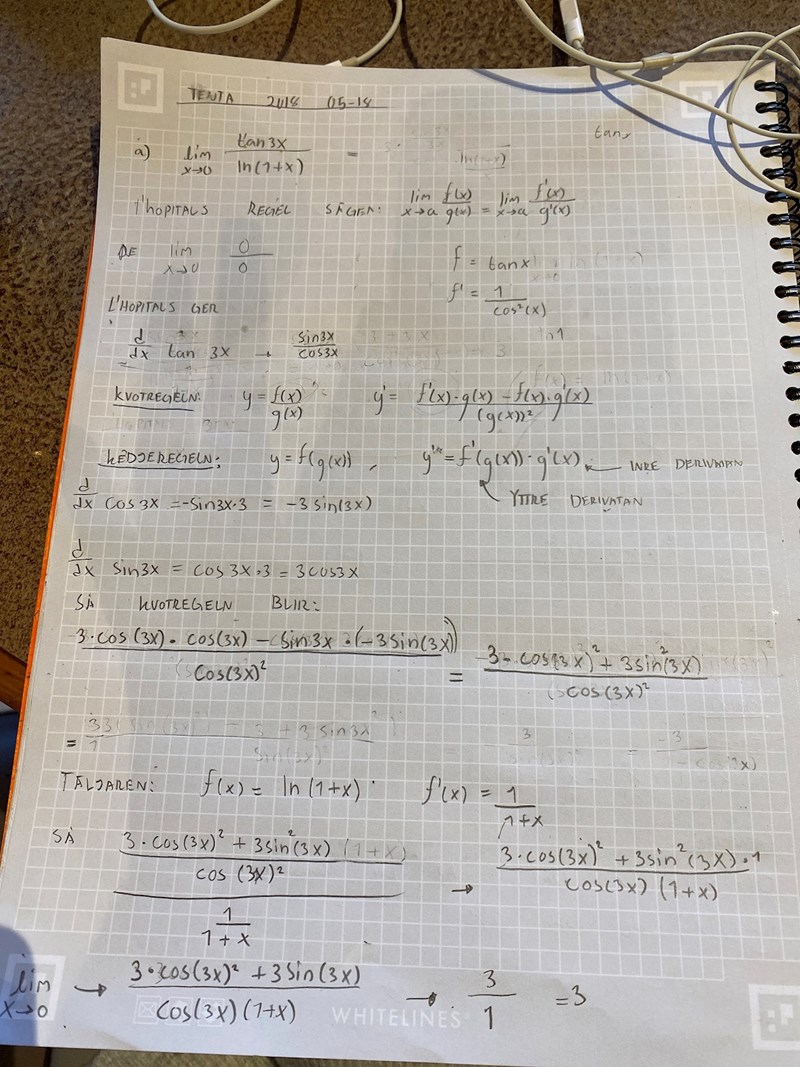 TENTA 2018 05-18
a) lim x→0 tan3x / ln(1+x) =
tan,
l'HOPITALS REGEL SÄGER: lim x→a f(x)/g(x) = lim x→a f'(x)/g'(x)
lim x→0 0/0
f = tanx
f' = 1/cos²(x)
L'HOPITALS GER
d/dx tan 3x → sin3x/cos3x
KVOTREGELN: y = f(x)/g(x) y' = f'(x)·g(x) - f(x)·g'(x) / (g(x))²
KEDJEREGELN: y = f(g(x)), y' = f'(g(x))·g'(x) ← INRE DERIVATAN
YTTRE DERIVATAN
d/dx cos 3x = -sin3x·3 = -3 sin(3x)
d/dx sin3x = cos3x·3 = 3cos3x
SÅ KVOTREGELN BLIR:
3·cos(3x)·cos(3x) - (sin3x·(-3sin(3x)) / cos(3x)² = 3·cos(3x)² + 3sin²(3x) / cos(3x)²
TÄLJAREN: f(x) = ln(1+x) f'(x) = 1/1+x
SÅ 3·cos(3x)² + 3sin²(3x) / cos(3x)² / 1/1+x → 3·cos(3x)² + 3sin²(3x)·1 / cos(3x)(1+x)
lim x→0 → 3·cos(3x)² + 3sin(3x) / cos(3x)(1+x) → 3/1 = 3
WHITELINES